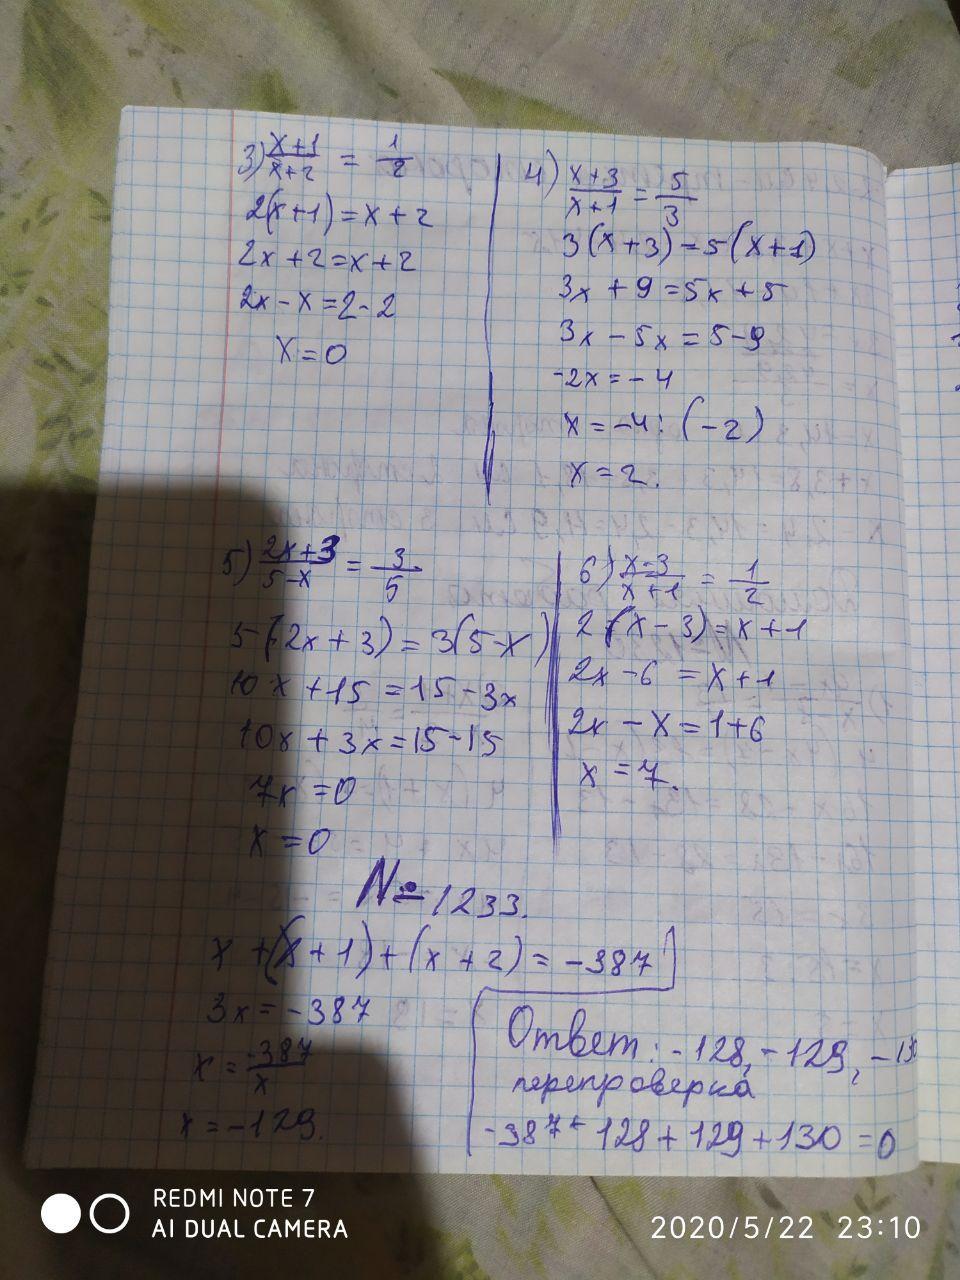 3) x+1/x+2 = 1/2
2(x+1)=x+2
2x+2=x+2
2x-x=2-2
x=0
4) x+3/x+1 = 5/3
3(x+3)=5(x+1)
3x+9=5x+5
3x-5x=5-9
-2x=-4
x=-4:(-2)
x=2.
5) 2x+3/5-x = 3/5
5(2x+3)=3(5-x)
10x+15=15-3x
10x+3x=15-15
7x=0
x=0
6) x-3/x+1 = 1/2
2(x-3)=x+1
2x-6=x+1
2x-x=1+6
x=7.
№1233.
x+(x+1)+(x+2)=-387
3x=-387
x=-387/x
x=-129.
Ответ: -128, -129,
перепроверка
-387+128+129+130=0
REDMI NOTE 7
AI DUAL CAMERA
2020/5/22 23:10